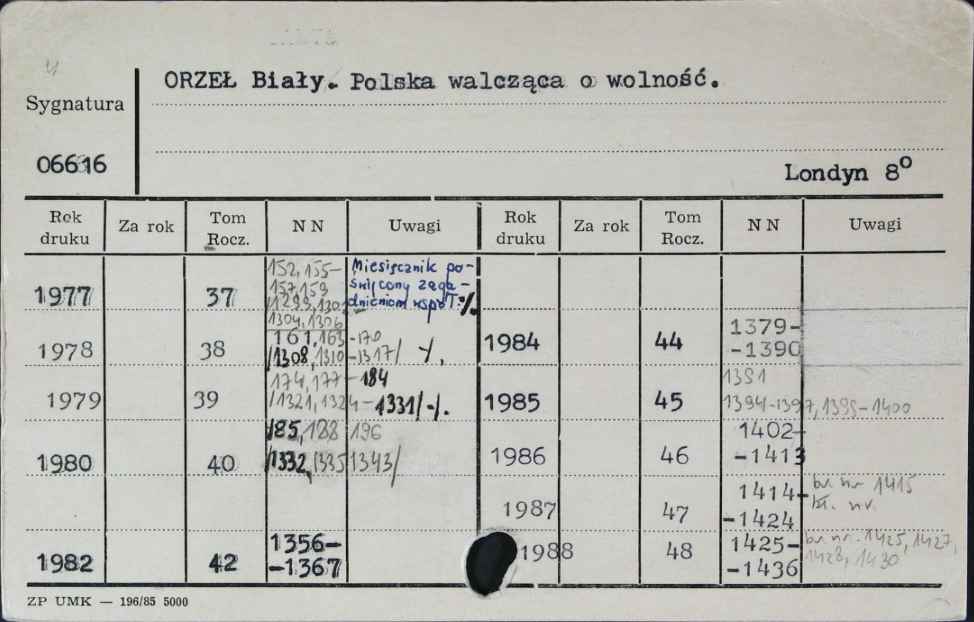 ORZEŁ Biały. Polska walcząca o wolność.
Sygnatura
06616
Londyn 8º
Rok druku Za rok Tom Rocz. NN Uwagi Rok druku Za rok Tom Rocz. NN Uwagi
1977 37 152, 155-
157, 159
1304, 1306
Miesięcznik po-
święcony zaga-
dnieniom współ. %.
1978 38 161, 163-170
/1308, 1310-1317/ -/.
1979 39 174, 177-184
/1321, 1324-1331/-/.
1980 40 185, 188 196
/1332, 1335 1343/
1982 42 1356-
-1367
1984 44 1379-
-1390
1985 45 1391
1394-1397, 1399-1400
1986 46 1402-
-1413
1987 47 1414-
-1424
br nr 1415
1988 48 1425-
-1436
br. nr. 1425, 1427,
1428, 1430
ZP UMK — 196/85 5000